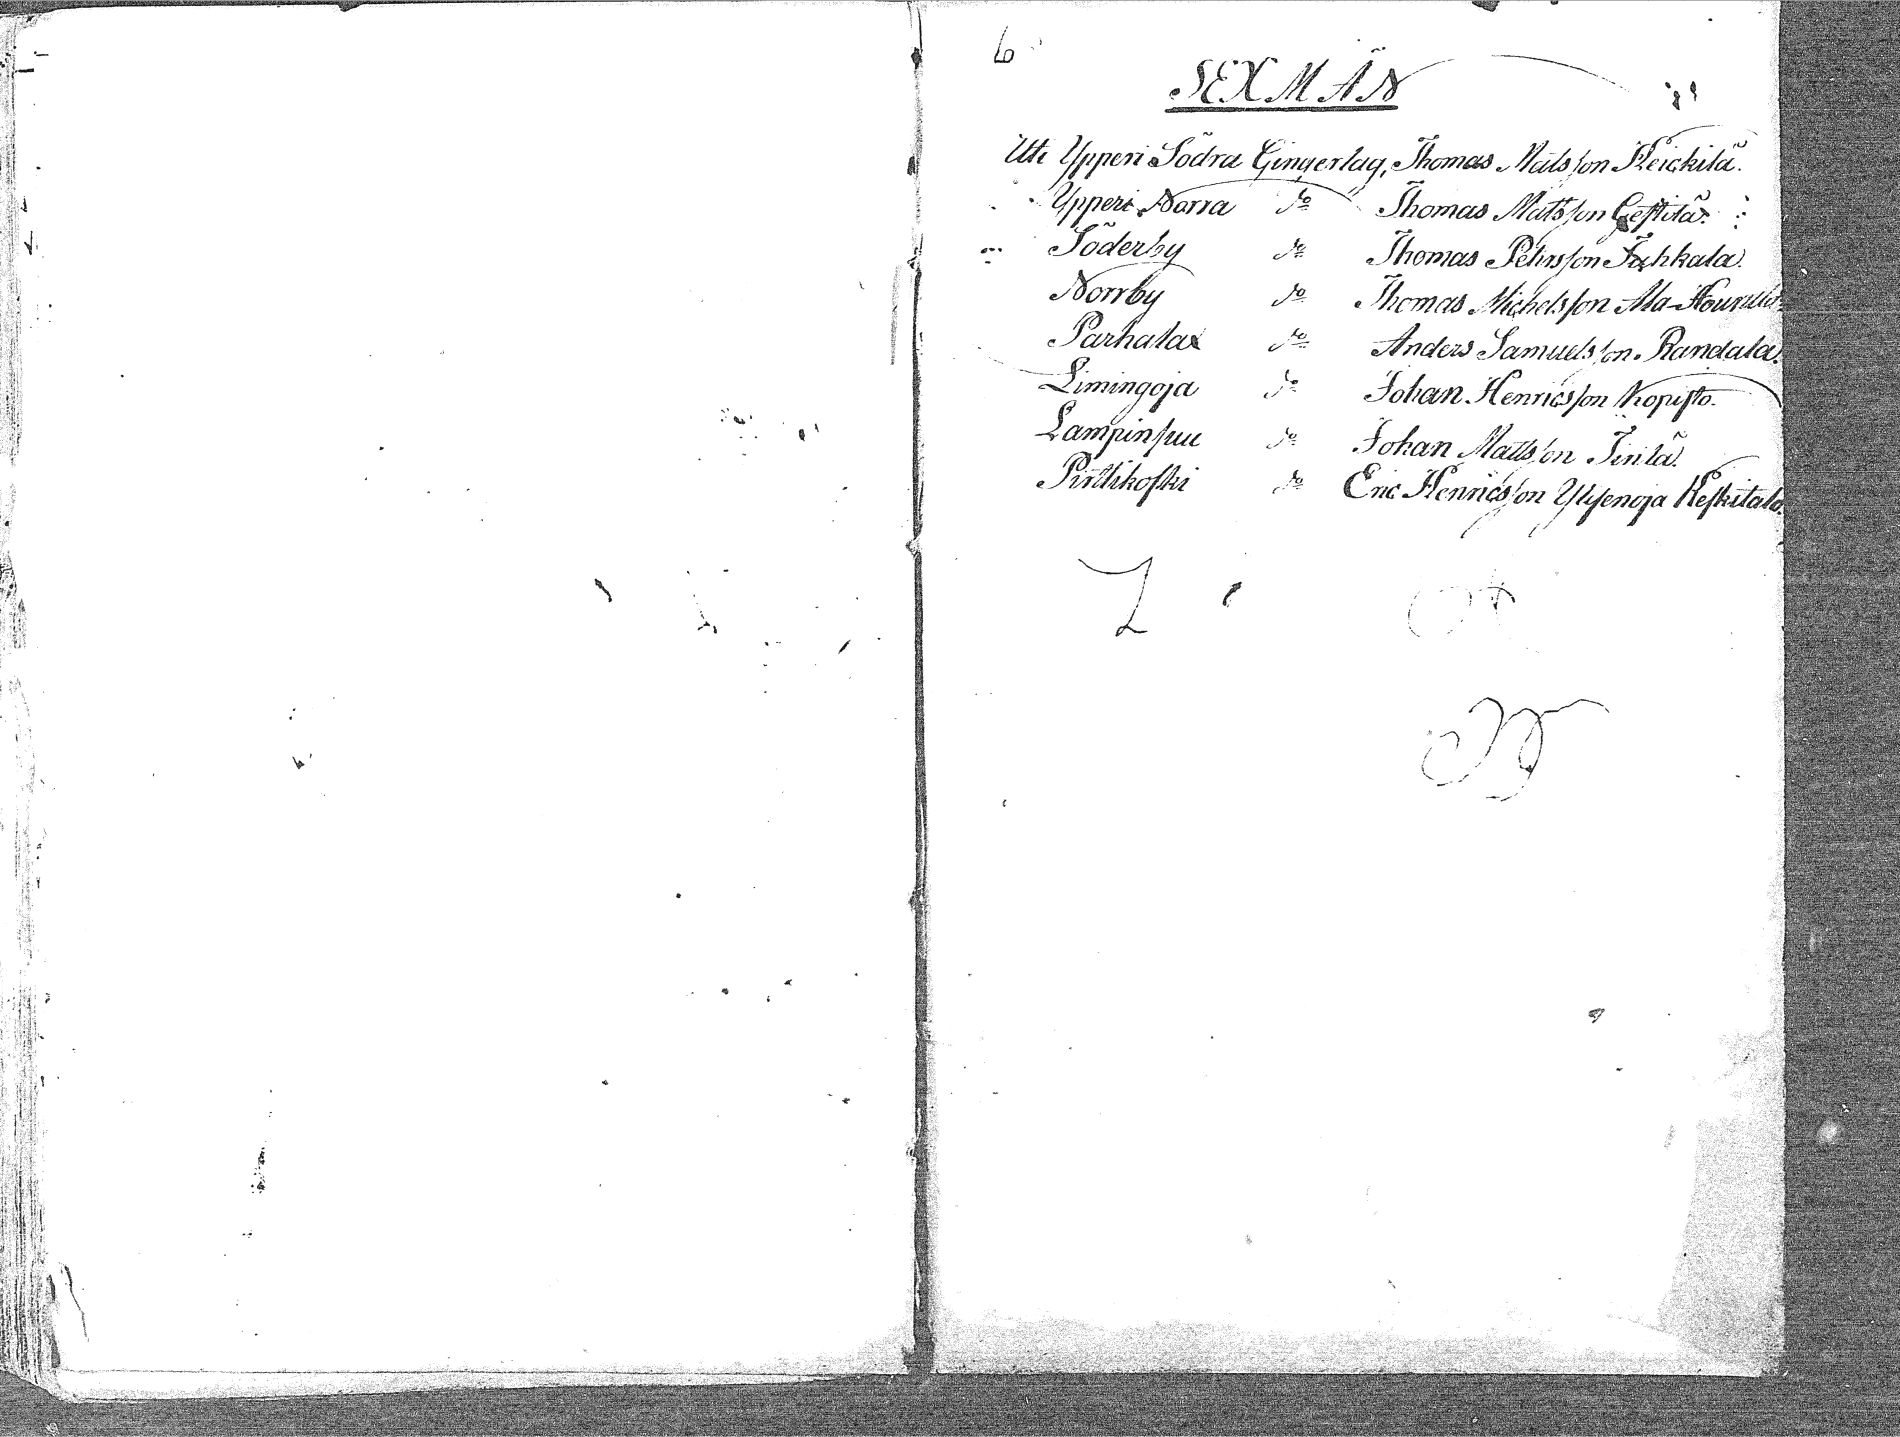 6
SEXMÄN
Uti Ypperi Södra Gingerlag, Thomas Matsson Heickilä.
Ypperi Norra do Thomas Matsson Gestilä.
Söderby do Thomas Pehrsson Juhkala.
Norrby do Thomas Michelsson Ala-
Parhalax do Anders Samuelsson Randala.
Limingoja do Johan Henricsson Kopisto.
Lampinsuu do Johan Matsson Jirilä.
Pirttikoski do Eric Henricsson Ylipenoja Keskitalo.